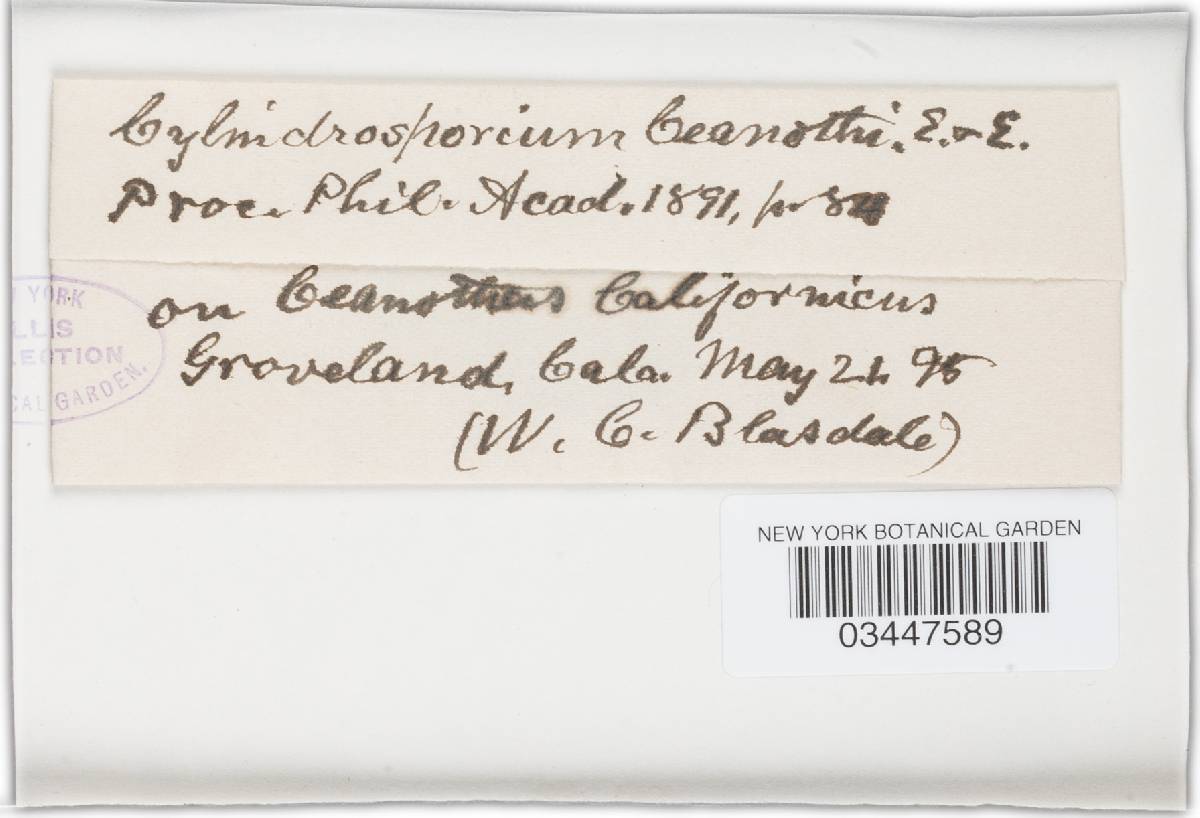 Cylindrosporium Ceanothi. E. & E.
Proc. Phil. Acad. 1891, p. 84
on Ceanothus Californicus
Groveland, Cala. May 21. 95
(W. C. Blasdale)
YORK
LLIS
ECTION
CAL GARDEN.
NEW YORK BOTANICAL GARDEN
03447589